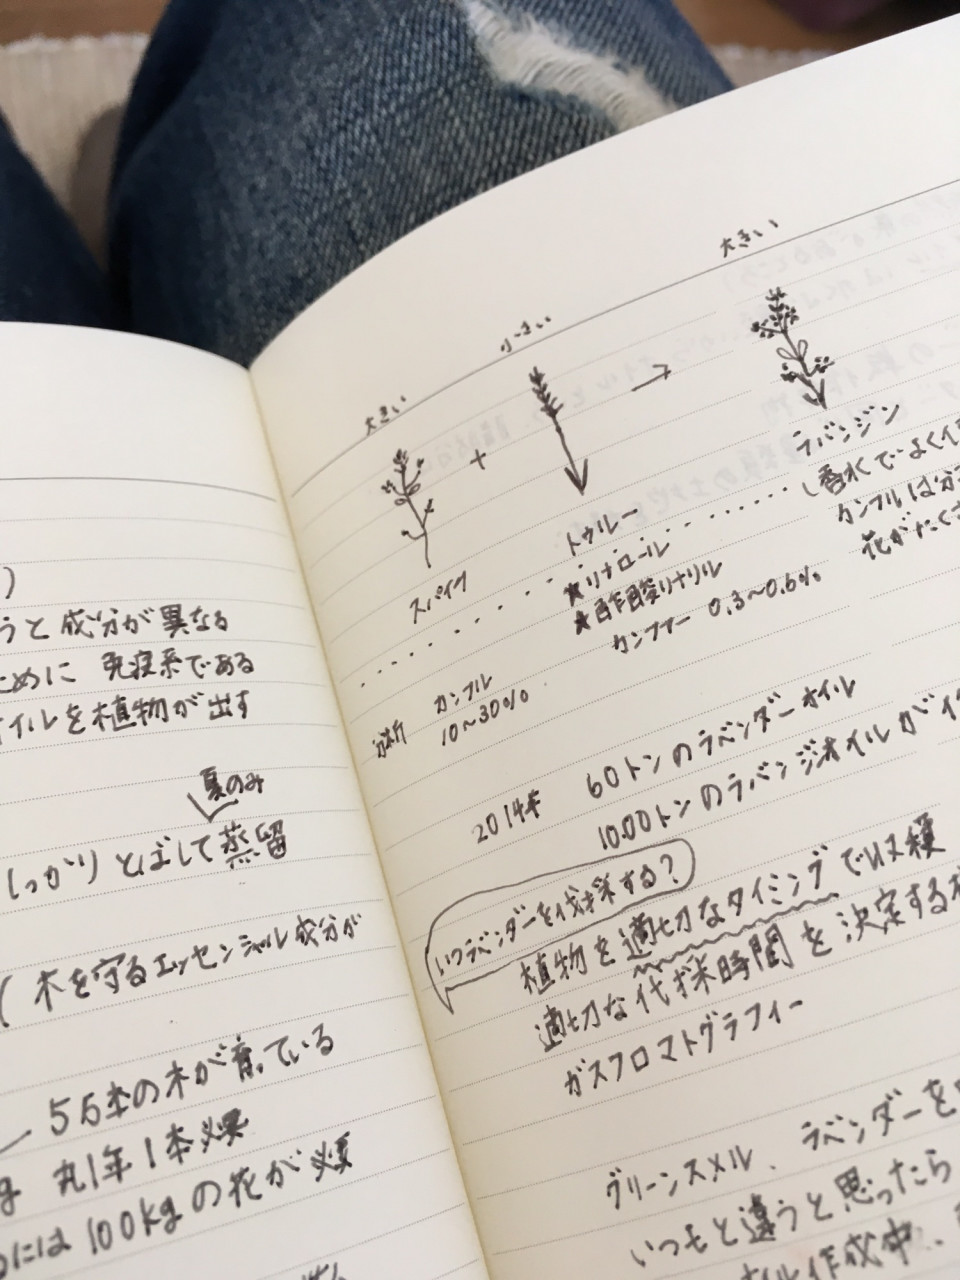 うと成分が異なる
ために 免疫系である
オイルを植物が出す
夏のみ
しっかりとばして蒸留
(木を守るエッセンシャル成分が
55本の木が育っている
丸1年1本必要
には100kgの花が必要
大きい
小さい
大きい
+
→
スパイク
トゥルー
ラバンジン
★リナロール
★酢酸リナリル
香水でよく
カンファー 0.3~0.6%
カンフルは分
花がたくさ
分析
カンフル
10~30%
2014年 60トンのラベンダーオイル
1000トンのラバンジオイルが
いつラベンダーを伐採する?
植物を適切なタイミングで収穫
適切な伐採時間を決定する
ガスクロマトグラフィー
グリーンスメル、ラベンダーを
いつもと違うと思ったら
オイル作成中、